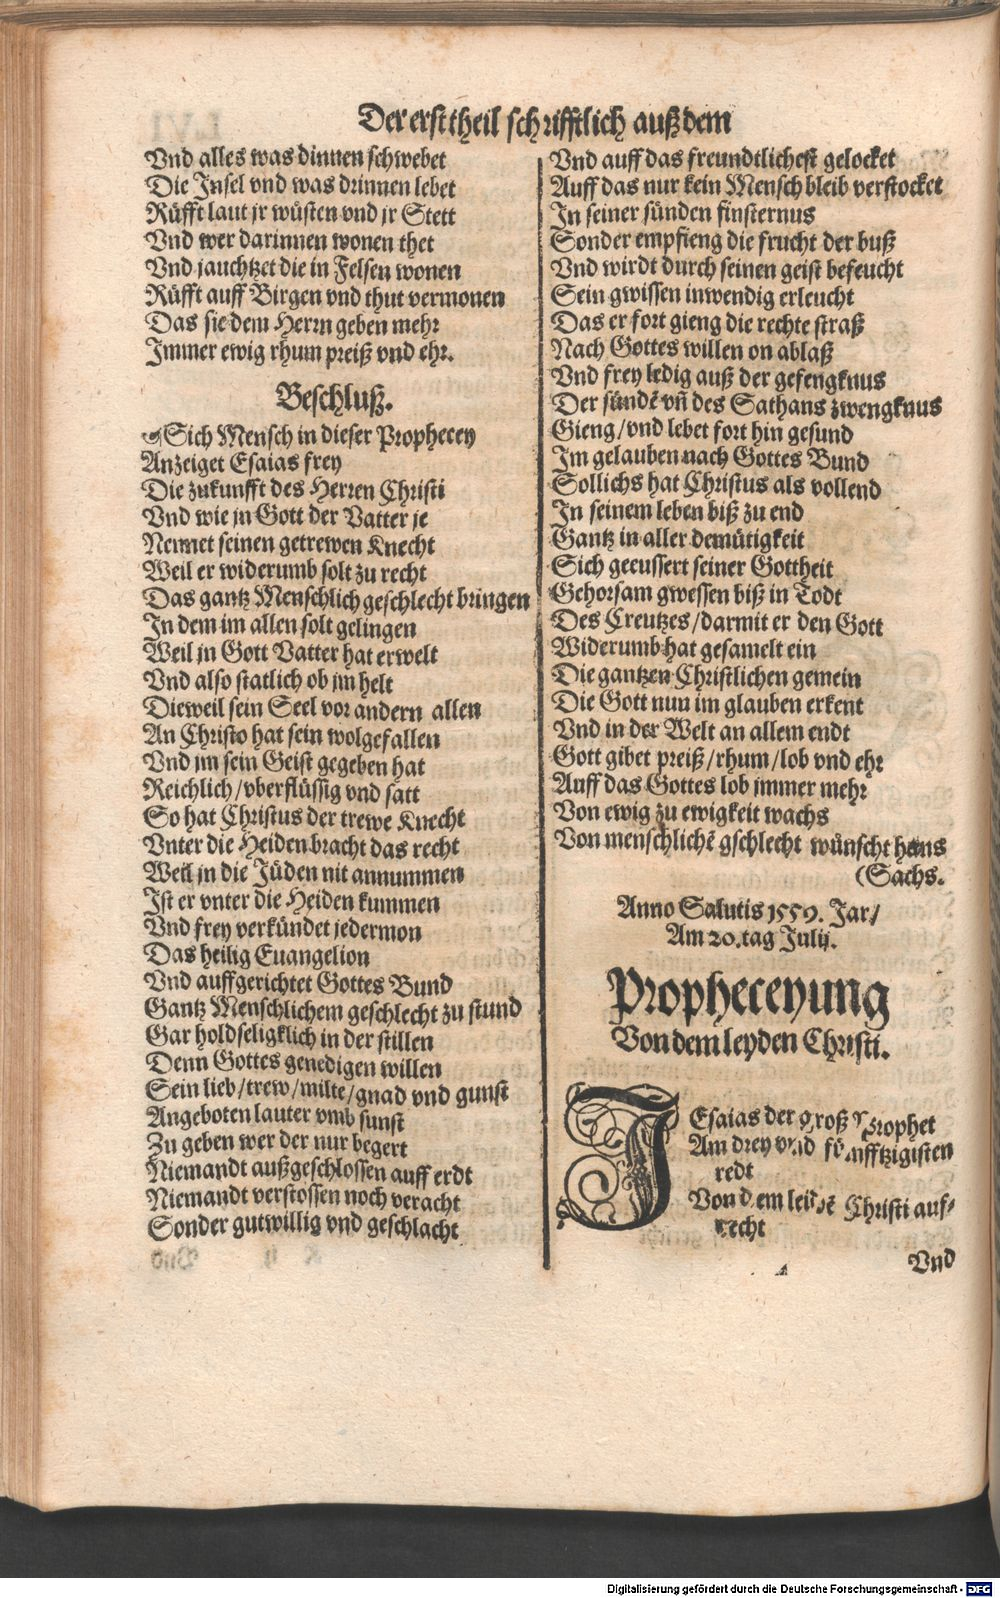 Der erst theil schrifftlich auß dem
Vnd alles was dinnen schwebet
Die Insel vnd was drinnen lebet
Rüfft laut jr wüsten vnd jr Stett
Vnd wer darinnen wonen thet
Vnd jauchtzet die in Felsen wonen
Rüfft auff Birgen vnd thut vermonen
Das sie dem Herrn geben mehr
Immer ewig rhum preiß vnd ehr.
Beschluß.
Sich Mensch in dieser Prophecey
Anzeiget Esaias frey
Die zukunfft des Herren Christi
Vnd wie jn Gott der Vatter je
Nennet seinen getrewen Knecht
Weil er widerumb solt zu recht
Das gantz Menschlich geschlecht bringen
In dem im allen solt gelingen
Weil jn Gott Vatter hat erwelt
Vnd also statlich ob jm helt
Dieweil sein Seel vor andern allen
An Christo hat sein wolgefallen
Vnd jm sein Geist gegeben hat
Reichlich/vberflüssig vnd satt
So hat Christus der trewe Knecht
Vnter die Heiden bracht das recht
Weil jn die Jüden nit annummen
Ist er vnter die Heiden kummen
Vnd frey verkündet jedermon
Das heilig Euangelion
Vnd auffgerichtet Gottes Bund
Gantz Menschlichem geschlecht zu stund
Gar holdseligklich in der stillen
Denn Gottes genedigen willen
Sein lieb/trew/milte/gnad vnd gunst
Angeboten lauter vmb sunst
Zu geben wer der nur begert
Niemandt außgeschlossen auff erdt
Niemandt verstossen noch veracht
Sonder gutwillig vnd geschlacht
Vnd auff das freundtlichest gelocket
Auff das nur kein Mensch bleib verstocket
In seiner sünden finsternus
Sonder empfieng die frucht der buß
Vnd wirdt durch seinen geist befeucht
Sein gwissen inwendig erleucht
Das er fort gieng die rechte straß
Nach Gottes willen on ablaß
Vnd frey ledig auß der gefengknus
Der sündē vñ des Sathans zwengknus
Gieng/vnd lebet fort hin gesund
Im gelauben nach Gottes Bund
Sollichs hat Christus als vollend
In seinem leben biß zu end
Gantz in aller demütigkeit
Sich geeussert seiner Gottheit
Gehorsam gwessen biß in Todt
Des Creutzes/darmit er den Gott
Widerumb hat gesamelt ein
Die gantzen Christlichen gemein
Die Gott nun im glauben erkent
Vnd in der Welt an allem endt
Gott gibet preiß/rhum/lob vnd ehr
Auff das Gottes lob jmmer mehr
Von ewig zu ewigkeit wachs
Von menschlichē gschlecht wünscht hans
(Sachs.
Anno Salutis 1559. Jar/
Am 20. tag Julij.
Propheceyung
Von dem leyden Christi.
IEsaias der groß Prophet
Am drey vnd fünfftzigisten
redt
Von dem leidē Christi auf-
recht
Vnd
Digitalisierung gefördert durch die Deutsche Forschungsgemeinschaft - DFG